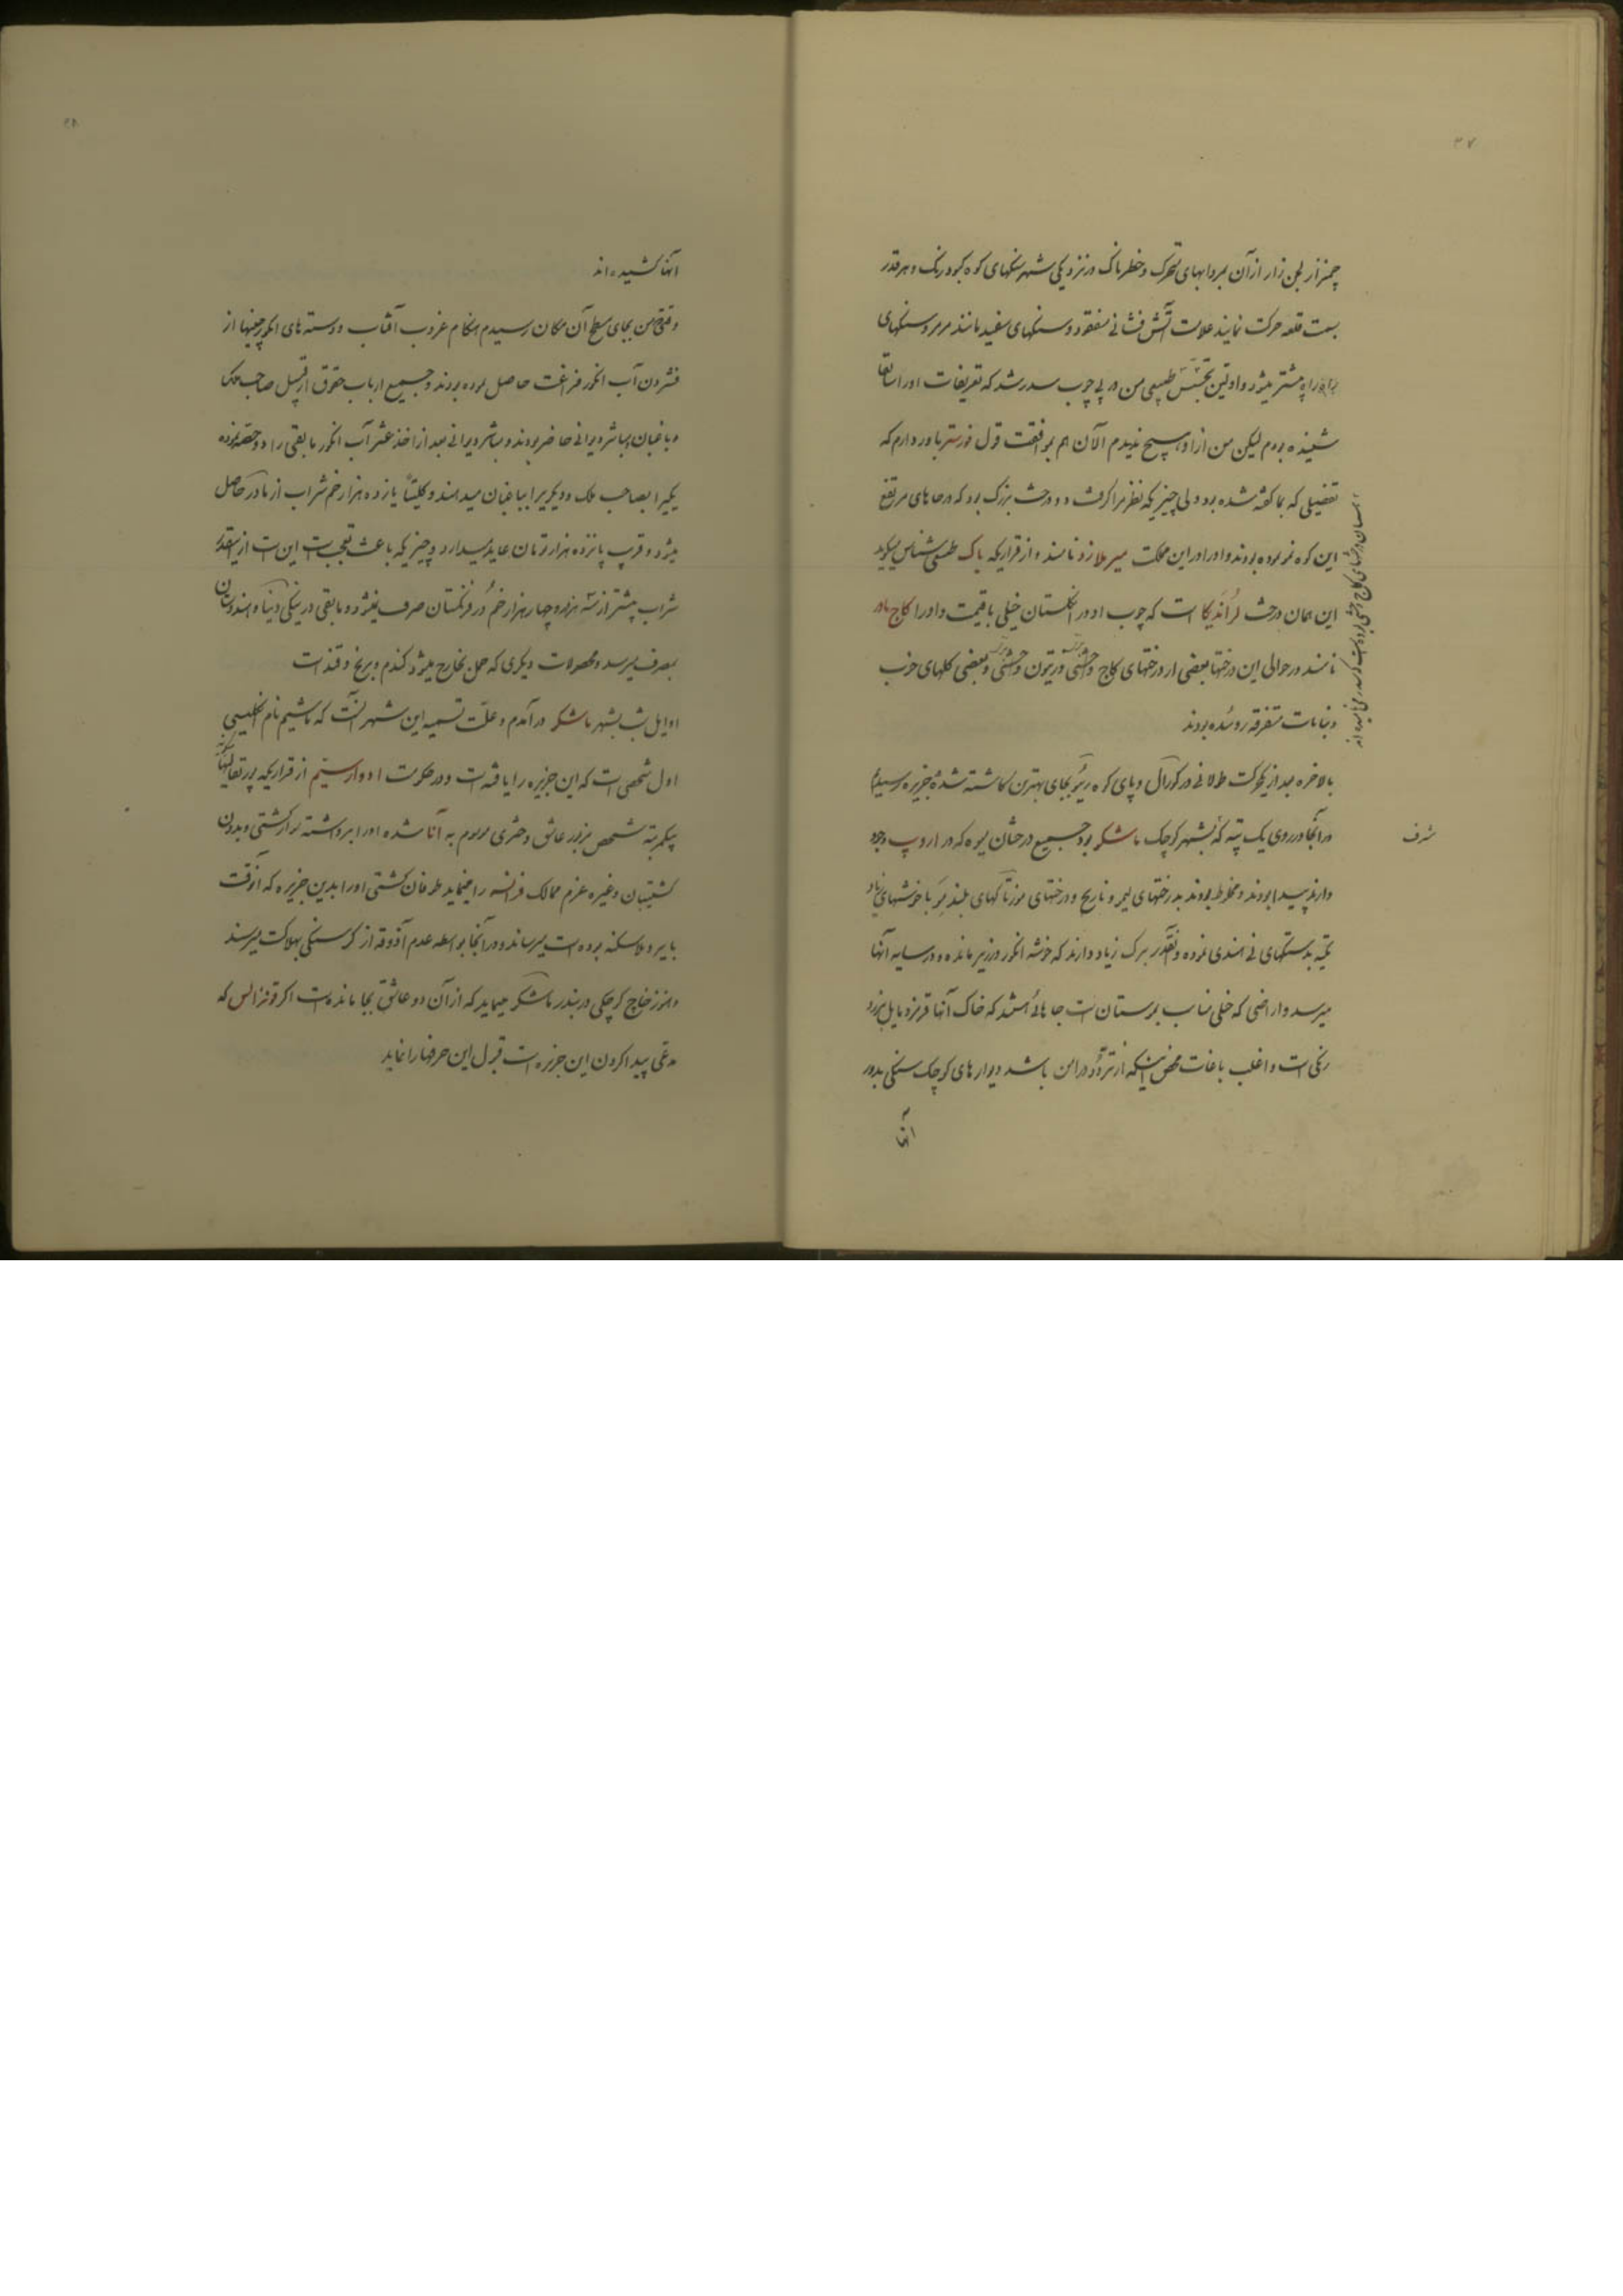 ۳۷
چمنزار لجن زار از آن مردابهای متحرک و خطرناک در نزدیکی شهر سنگهای کوه کبود رنگ و هرقدر
بسمت قلعه حرکت نمایند علامت آتش فشانی مفقود و سنگهای سفید مانند مرمر و سنگهای
پیشتر میشود و اولین تجسس طبیعی من در پی چوب سدر شد که تعریفات او را سابقا
شنیده بودم لیکن من از او هیچ ندیدم الآن هم بموافقت قول فورستر باور دارم که
تفضیلی که بما گفته شده بود ولی چیزیکه نظر مرا گرفت دو درخت بزرک بود که در جاهای مرتفع
این کوه نمو نموده بودند و او را در این مملکت میرملانو نامند و از قراریکه باک طبیعی شناس میگوید
این همان درخت لراندیکا است که چوب او در انگلستان خیلی با قیمت و او را کاج مادر
نامند در حوالی این درختها بعضی از درختهای کاج وحشی و زیتون وحشی و بعضی گلهای خوب
و نباتات متفرقه روئیده بودند
بالاخره بعد از یکحرکت طولانی در کورال و پای کوه ریئو بجای بهترین کاشته شدهٔ جزیره رسیدیم
در آنجا در روی یک تپه که بشهر کوچک ماشکو بود جمیع درختان میوه که در اروپ وجود
شرف
دارند پیدا بودند و مخلوط بودند بدرختهای لیمو و نارنج و درختهای موز تاکهای بلند مو با خوشهای زیاد
تکیه بدستکهای نی هندی نموده و آنقدر برک زیاد دارند که خوشه انگور در زیر مانده و در سایه آنها
میرسد و اراضی که خیلی مناسب موستان است جاهائی هستند که خاک آنها قرمز و مایل بزرد
رنگی است و اغلب باغات محض اینکه از تردد در امن باشد دیوارهای کوچک سنگی بدور
آنها
۳۸
آنها کشیده اند
وقتی من بجای مسطح آن مکان رسیدم هنگام غروب آفتاب و دسته های انگورچینها از
فشردن آب انگور فراغت حاصل نموده بودند و جمیع ارباب حقوق از قبیل صاحب ملک
و باغبان مباشر دیوانی حاضر بودند و مباشر دیوانی بعد از اخذ عشر آب انگور مابقی را دو حصه نموده
یکیرا بصاحب ملک و دیگریرا بباغبان میدهند و کلیتاً پانزده هزار خم شراب از مادر حاصل
میشود و قریب پانزده هزار تومان عاید میدارد و چیزیکه باعث تعجب است این است از اینقدر
شراب بیشتر از سه هزار و چهار هزار خم در فرنگستان صرف نمیشود و مابقی در ینگی دنیا و هندوستان
بمصرف میرسد و محصولات دیگری که حمل بخارج میشود گندم و برنج و قند است
اوایل شب بشهر ماشکو در آمدم و علت تسمیه این شهر آنست که ماشیم نام انگلیسی
اول شخصی است که این جزیره را یافته است و در حکومت ادوار سیم از قراریکه پورتغالیها
شخص مزبور عاشق دختری موسوم به آنا شده او را برداشته سوار کشتی و بدون
کشتیبان و غیره عزم ممالک فرانسه را مینماید طوفان کشتی او را بدین جزیره که آنوقت
بایر و بلاسکنه بوده است میرساند و در آنجا بواسطه عدم آذوقه از گرسنگی بهلاکت میرسند
و هنوز خاج کوچکی در بندر ماشکو مینماید که از آن دو عاشق بجا مانده است اگر قونزالس که
مدعی پیدا کردن این جزیره است قبول این حرفها را نماید